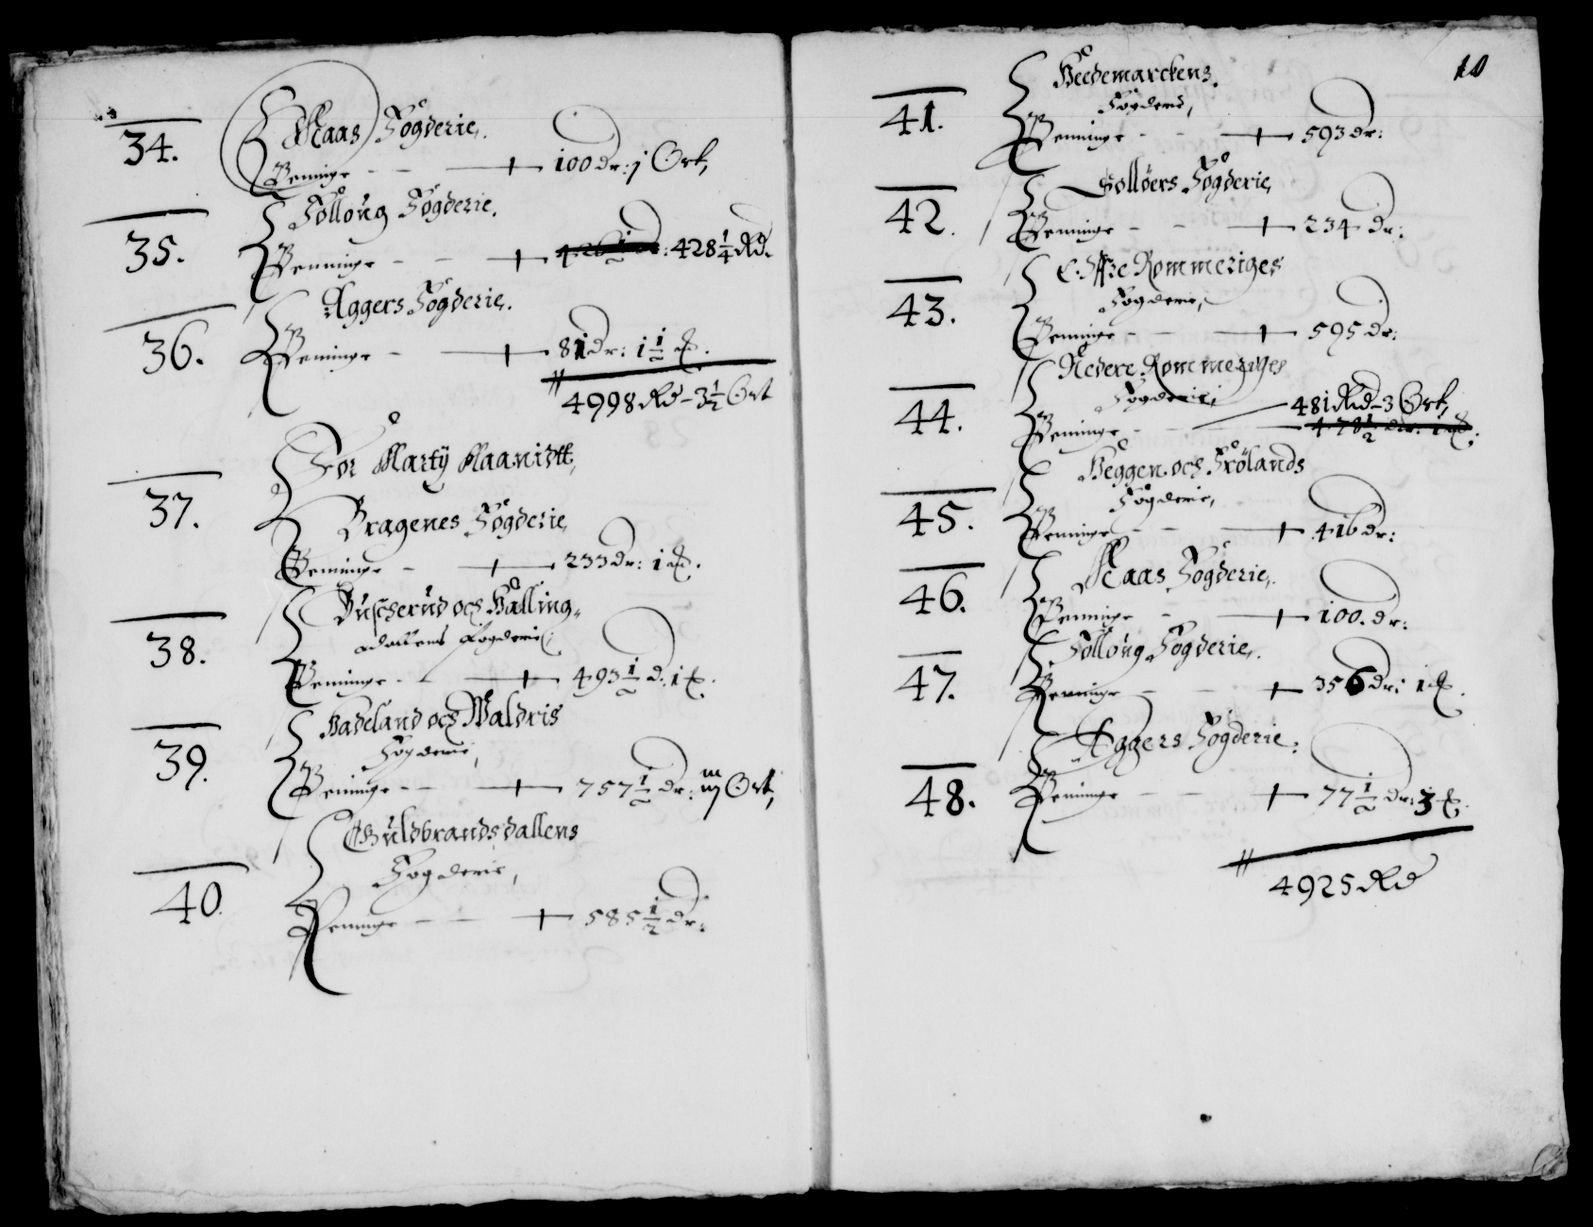 34.
Raas Fogderie.
Penninge - - + 100 dr: j Ort,
35.
Follong Fogderie.
Penninge - - + 428 1/4 Rd.
36.
Aggers Fogderie.
Penninge - + 81 dr: 1 1/2
4998 Rd - 3 1/2 Ort
37.
For Marty
Bragenes Fogderie
Penninge - + 233 dr: 1
38.
Buscherud och Halling-
dallens Fogderie
Penninge - - + 493 1/2 d: 1
39.
Hadeland och Waldris
Fogderie,
Penninge - - + 757 1/2 dr: Ort,
40.
Guldbrandsdallens
Fogderie,
Penninge - - + 585 1/2 dr:
10
41.
Hedemarckens
Fogderie,
Penninge - - + 593 dr:
42.
Solløers Fogderie
Penninge - - + 234 dr:
43.
Øffre Rommeriges
Fogderie,
Penninge - - + 595 dr:
44.
Nedere Rommeriges
Fogderie,
481 Rd - 3 Ort,
Penninge - - 478 1/2 dr: 1
45.
Heggen och Frølands
Fogderie,
Penninge - - + 416 dr:
46.
Raas Fogderie,
Penninge - + 100. dr:
47.
Follong Fogderie,
Penninge - - + 356 dr: 1
48.
Aggers Fogderie:
Penninge - - + 77 1/2 dr: 3
4925 Rd